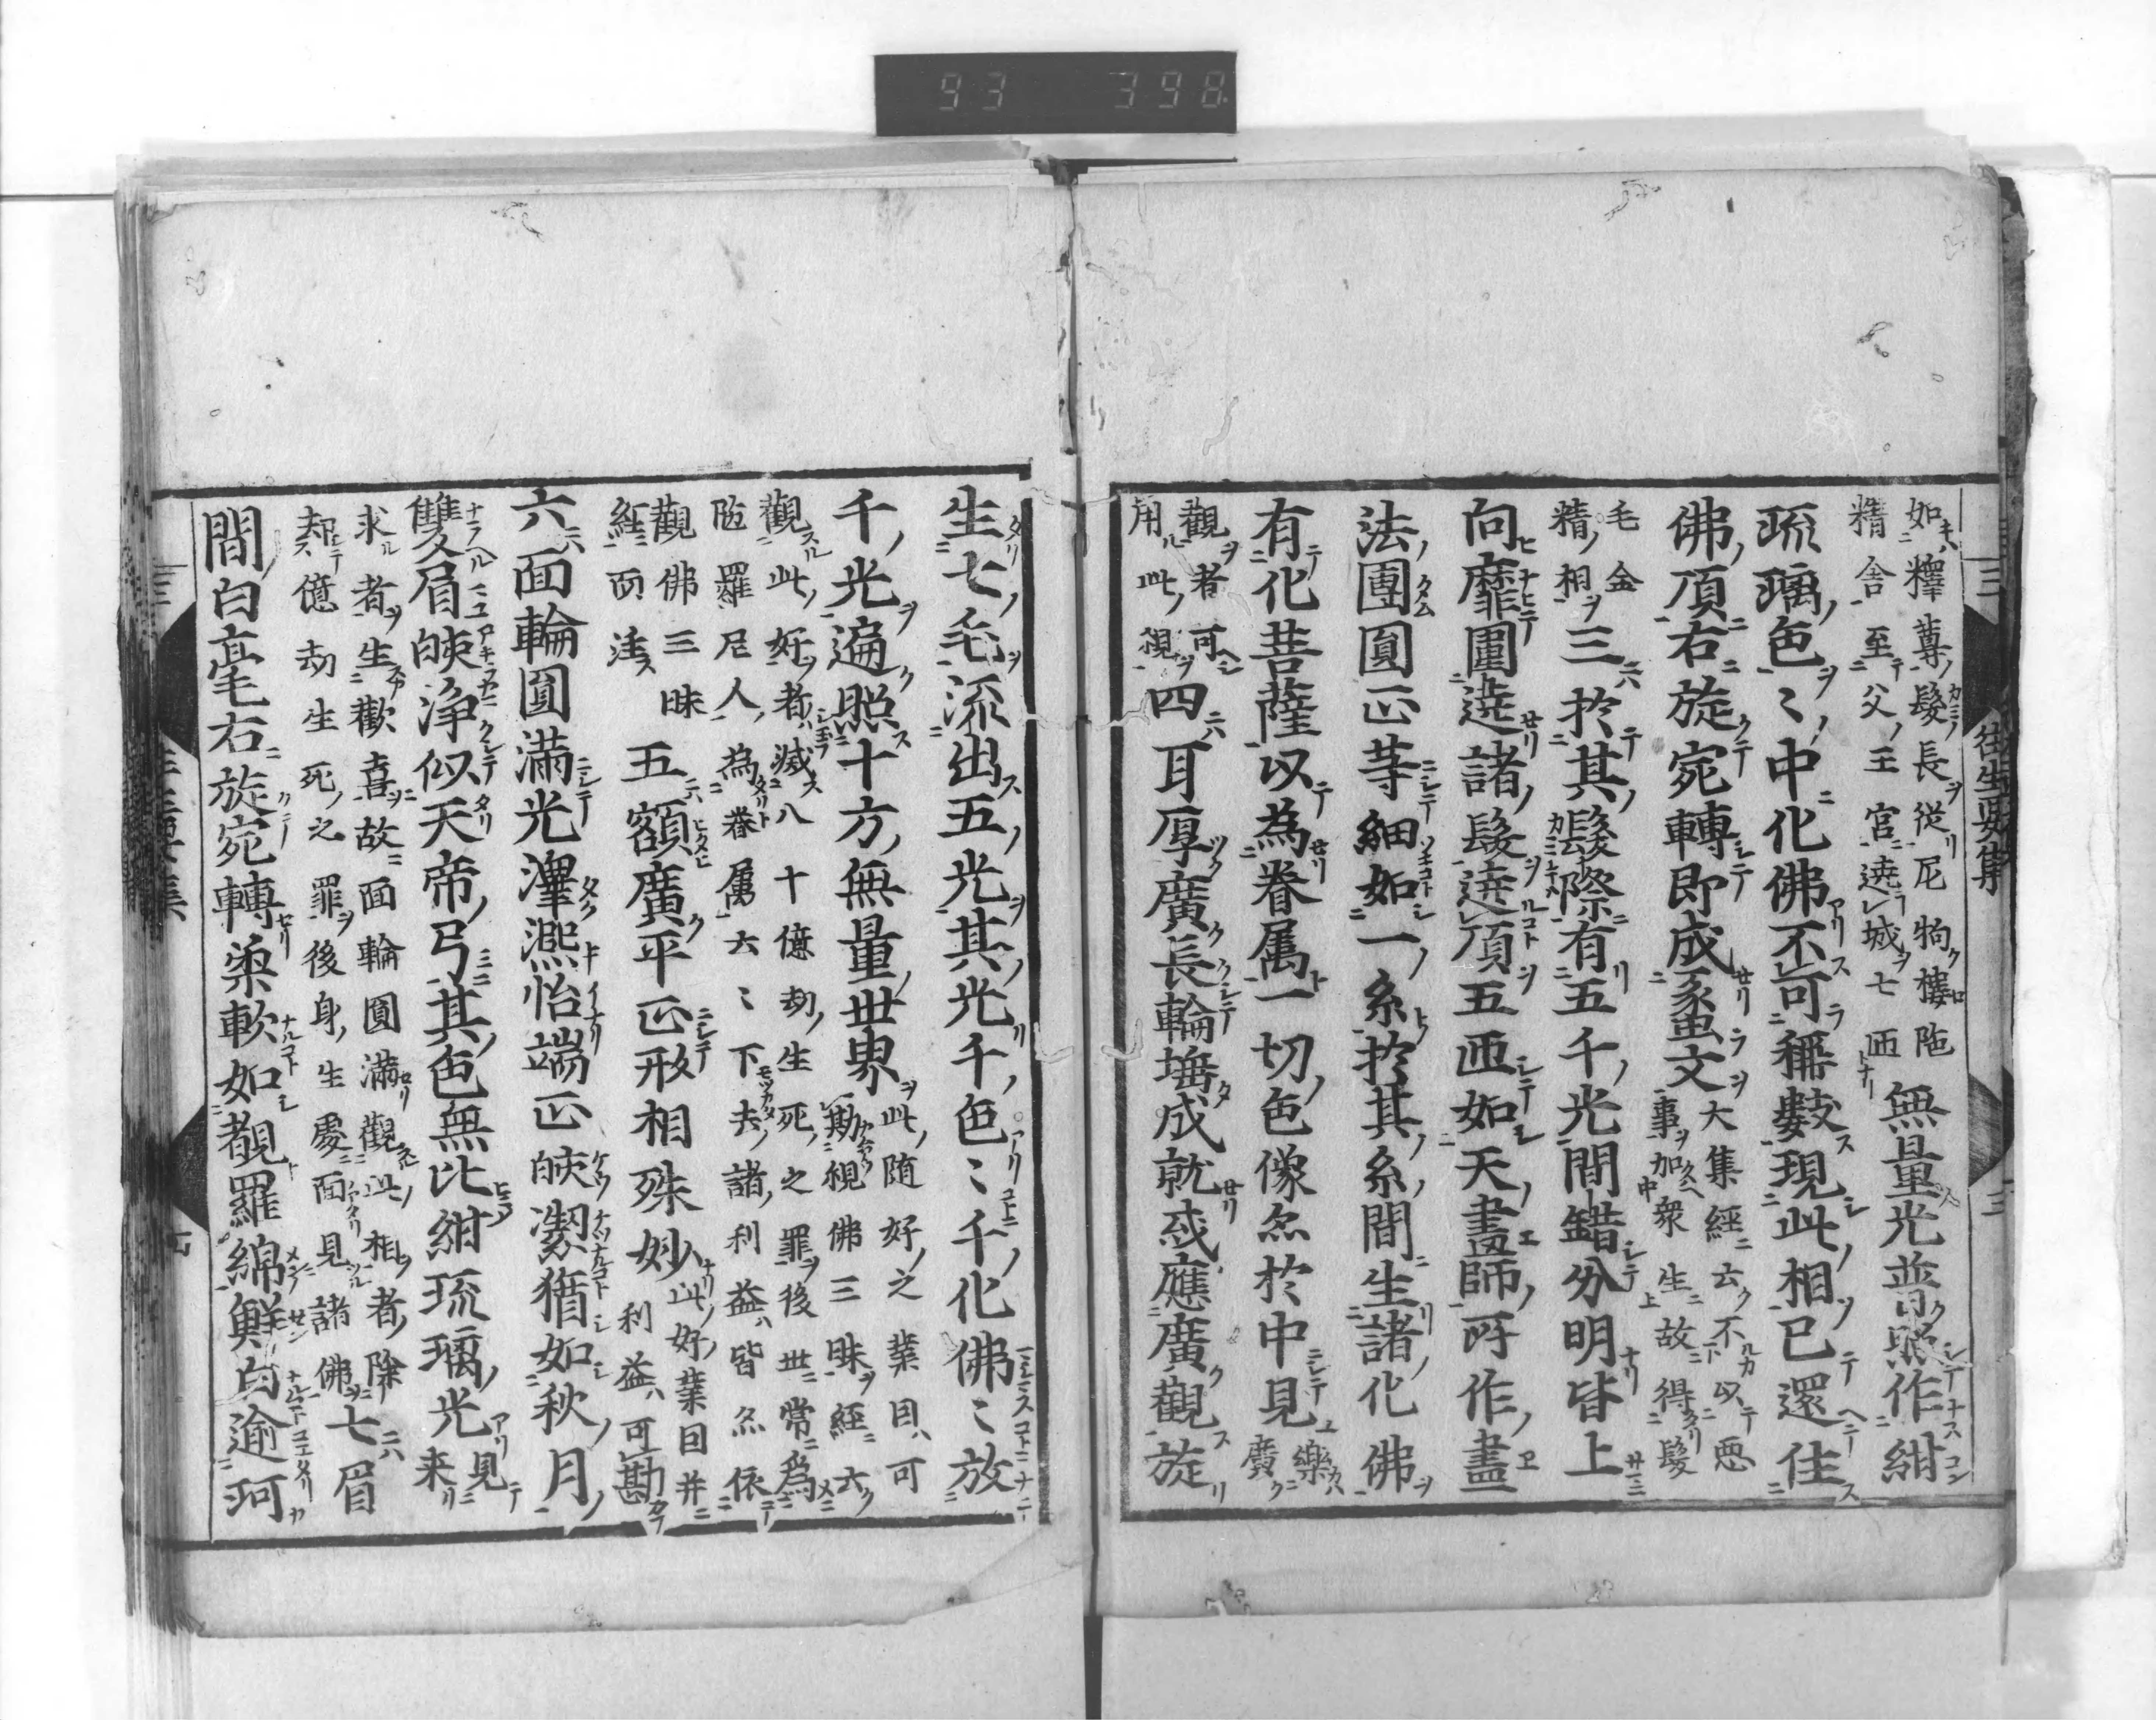 93 398
往生要集
如釋尊髮長從尼狗樓陁
精舍至父王宮遶城七匝
無量光普照作紺
琉璃色〻中化佛不可稱數現此相已還住
佛頂右旋宛轉即成蠡文
大集經云不以惡
事加衆生故得髮
毛金
精相
三於其髮際有五千光間錯分明皆上
向靡圍遶諸髮遶頂五匝如天畫師所作畫
法團圓正等細如一糸於其糸間生諸化佛
有化菩薩以為眷属一切色像亦於中見
樂
廣
觀者可
用此觀
四耳厚廣長輪埵成就或應廣觀旋
生七毛流出五光其光千色〻千化佛〻放
千光遍照十方無量世界
此随好之業因可
勘觀佛三昧經云
觀此好者滅八十億劫生死之罪後世常為
陁羅尼人為眷属云〻下去諸利益皆亦依
觀佛三昧
經而注
五額廣平正形相殊妙
此好業因并
利益可勘
六面輪圓滿光澤凞怡端正皎潔猶如秋月
雙眉皎淨似天帝弓其色無比紺琉璃光
見
来
求者生歡喜故面輪圓滿觀此相者除
却億劫生死之罪後身生處面見諸佛
七眉
間白毫右旋宛轉柔軟如覩羅綿鮮白逾珂